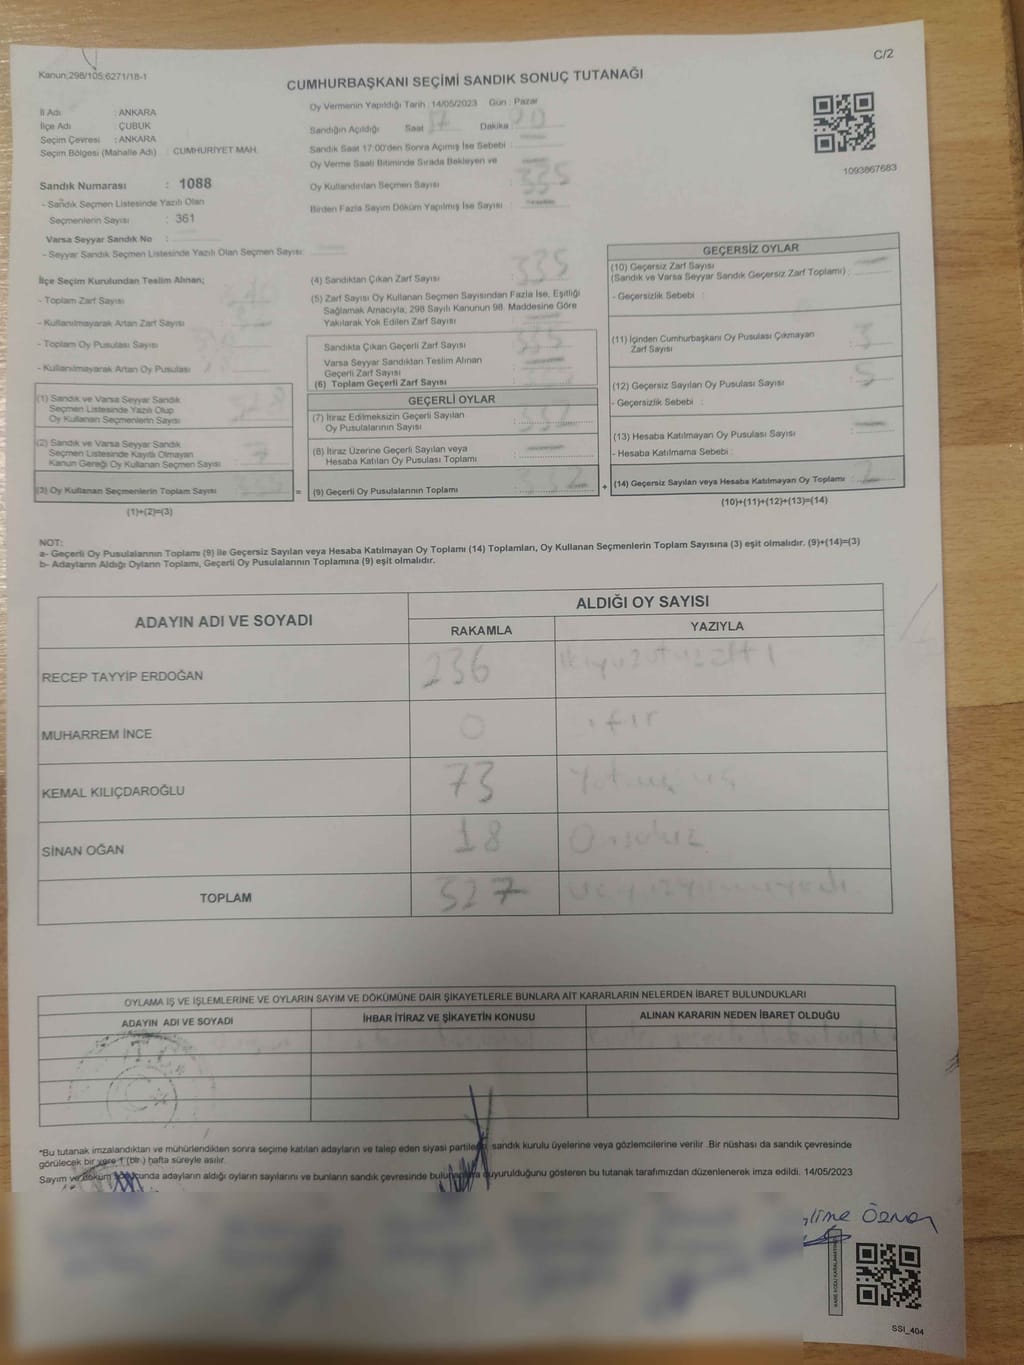 C/2
Kanun;298/105;6271/18-1
CUMHURBAŞKANI SEÇİMİ SANDIK SONUÇ TUTANAĞI
İl Adı : ANKARA
İlçe Adı : ÇUBUK
Seçim Çevresi : ANKARA
Seçim Bölgesi (Mahalle Adı) : CUMHURİYET MAH.
Sandık Numarası : 1088
- Sandık Seçmen Listesinde Yazılı Olan
Seçmenlerin Sayısı : 361
Varsa Seyyar Sandık No :
- Seyyar Sandık Seçmen Listesinde Yazılı Olan Seçmen Sayısı:
Oy Vermenin Yapıldığı Tarih : 14/05/2023 Gün : Pazar
Sandığın Açıldığı Saat : 17 Dakika :
Sandık Saat 17:00'den Sonra Açımış İse Sebebi :
Oy Verme Saati Bitiminde Sırada Bekleyen ve
Oy Kullandırılan Seçmen Sayısı : 335
Birden Fazla Sayım Döküm Yapılmış İse Sayısı :
1093867683
İlçe Seçim Kurulundan Teslim Alınan;
- Toplam Zarf Sayısı
- Kullanılmayarak Artan Zarf Sayısı
- Toplam Oy Pusulası Sayısı
- Kullanılmayarak Artan Oy Pusulası
(1) Sandık ve Varsa Seyyar Sandık
Seçmen Listesinde Yazılı Olup
Oy Kullanan Seçmenlerin Sayısı : 328
(2) Sandık ve Varsa Seyyar Sandık
Seçmen Listesinde Kayıtlı Olmayan
Kanun Gereği Oy Kullanan Seçmen Sayısı : 7
(3) Oy Kullanan Seçmenlerin Toplam Sayısı : 335
(1)+(2)=(3)
(4) Sandıktan Çıkan Zarf Sayısı : 335
(5) Zarf Sayısı Oy Kullanan Seçmen Sayısından Fazla İse, Eşitliği
Sağlamak Amacıyla; 298 Sayılı Kanunun 98. Maddesine Göre
Yakılarak Yok Edilen Zarf Sayısı :
Sandıkta Çıkan Geçerli Zarf Sayısı : 335
Varsa Seyyar Sandıktan Teslim Alınan
Geçerli Zarf Sayısı
(6) Toplam Geçerli Zarf Sayısı :
GEÇERLİ OYLAR
(7) İtiraz Edilmeksizin Geçerli Sayılan
Oy Pusulalarının Sayısı : 332
(8) İtiraz Üzerine Geçerli Sayılan veya
Hesaba Katılan Oy Pusulası Toplamı :
(9) Geçerli Oy Pusulalarının Toplamı : 332
GEÇERSİZ OYLAR
(10) Geçersiz Zarf Sayısı
(Sandık ve Varsa Seyyar Sandık Geçersiz Zarf Toplamı) :
- Geçersizlik Sebebi :
(11) İçinden Cumhurbaşkanı Oy Pusulası Çıkmayan
Zarf Sayısı : 3
(12) Geçersiz Sayılan Oy Pusulası Sayısı : 5
- Geçersizlik Sebebi :
(13) Hesaba Katılmayan Oy Pusulası Sayısı :
- Hesaba Katılmama Sebebi :
(14) Geçersiz Sayılan veya Hesaba Katılmayan Oy Toplamı :
(10)+(11)+(12)+(13)=(14)
NOT:
a- Geçerli Oy Pusulalarının Toplamı (9) ile Geçersiz Sayılan veya Hesaba Katılmayan Oy Toplamı (14) Toplamları, Oy Kullanan Seçmenlerin Toplam Sayısına (3) eşit olmalıdır. (9)+(14)=(3)
b- Adayların Aldığı Oyların Toplamı, Geçerli Oy Pusulalarının Toplamına (9) eşit olmalıdır.
ADAYIN ADI VE SOYADI
ALDIĞI OY SAYISI
RAKAMLA YAZIYLA
RECEP TAYYİP ERDOĞAN 236 ikiyüzotuzaltı
MUHARREM İNCE 0
KEMAL KILIÇDAROĞLU 73
SİNAN OĞAN 18 Onsekiz
TOPLAM 327 üçyüzyirmiyedi
OYLAMA İŞ VE İŞLEMLERİNE VE OYLARIN SAYIM VE DÖKÜMÜNE DAİR ŞİKAYETLERLE BUNLARA AİT KARARLARIN NELERDEN İBARET BULUNDUKLARI
ADAYIN ADI VE SOYADI İHBAR İTİRAZ VE ŞİKAYETİN KONUSU ALINAN KARARIN NEDEN İBARET OLDUĞU
*Bu tutanak imzalandıktan ve mühürlendikten sonra seçime katılan adayların ve talep eden siyasi partilerin sandık kurulu üyelerine veya gözlemcilerine verilir .Bir nüshası da sandık çevresinde
görülecek bir yere 1 (bir ) hafta süreyle asılır.
Sayım ve döküm sonucunda adayların aldığı oyların sayılarını ve bunların sandık çevresinde bulunanlara duyurulduğunu gösteren bu tutanak tarafımızdan düzenlenerek imza edildi. 14/05/2023
SSI_404